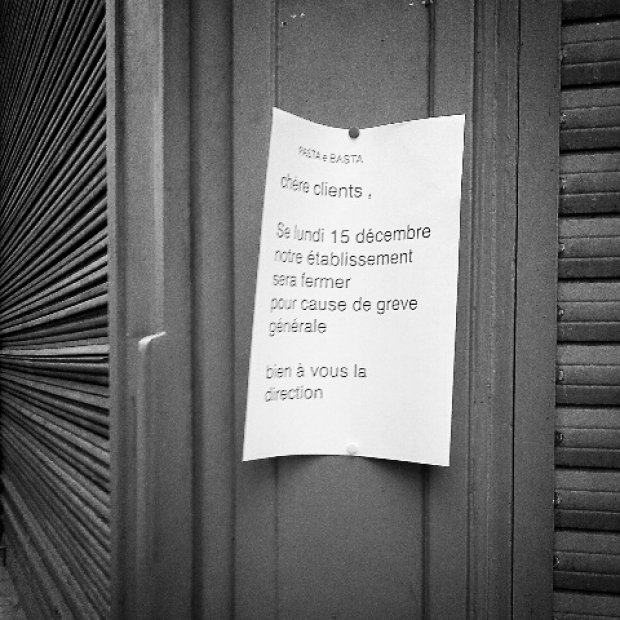 PASTA e BASTA
chère clients ,
Se lundi 15 décembre
notre établissement
sera fermer
pour cause de greve
générale
bien à vous la
direction